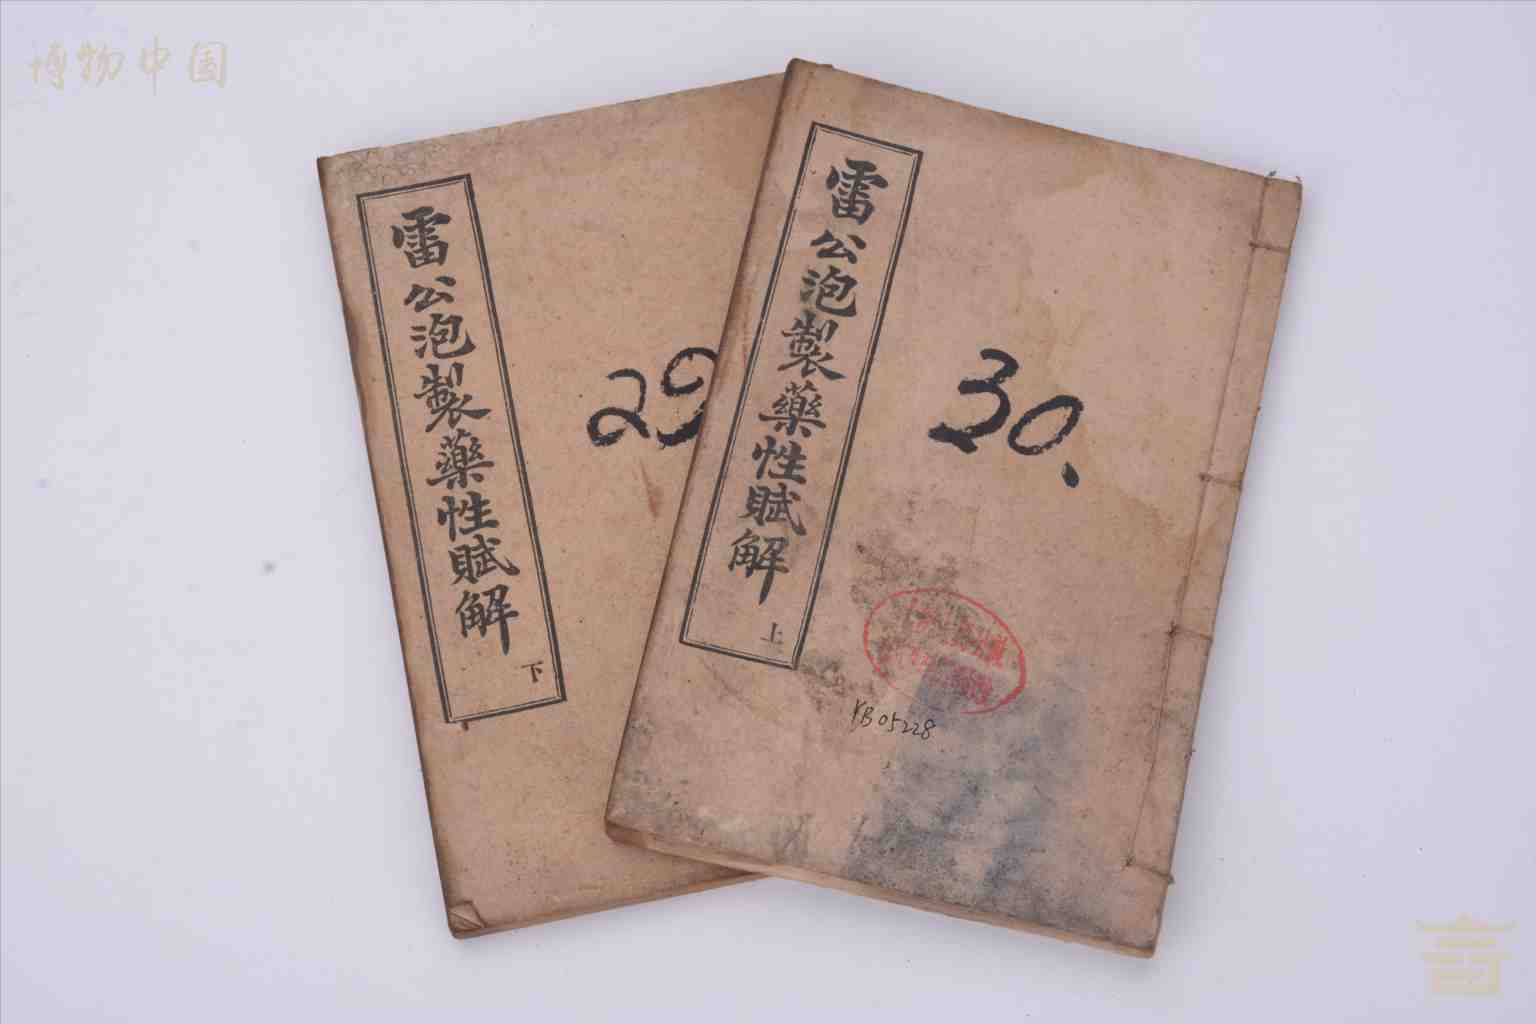 博物中国
雷公泡製藥性賦解 下
29
雷公泡製藥性賦解 上
30、
YB05228